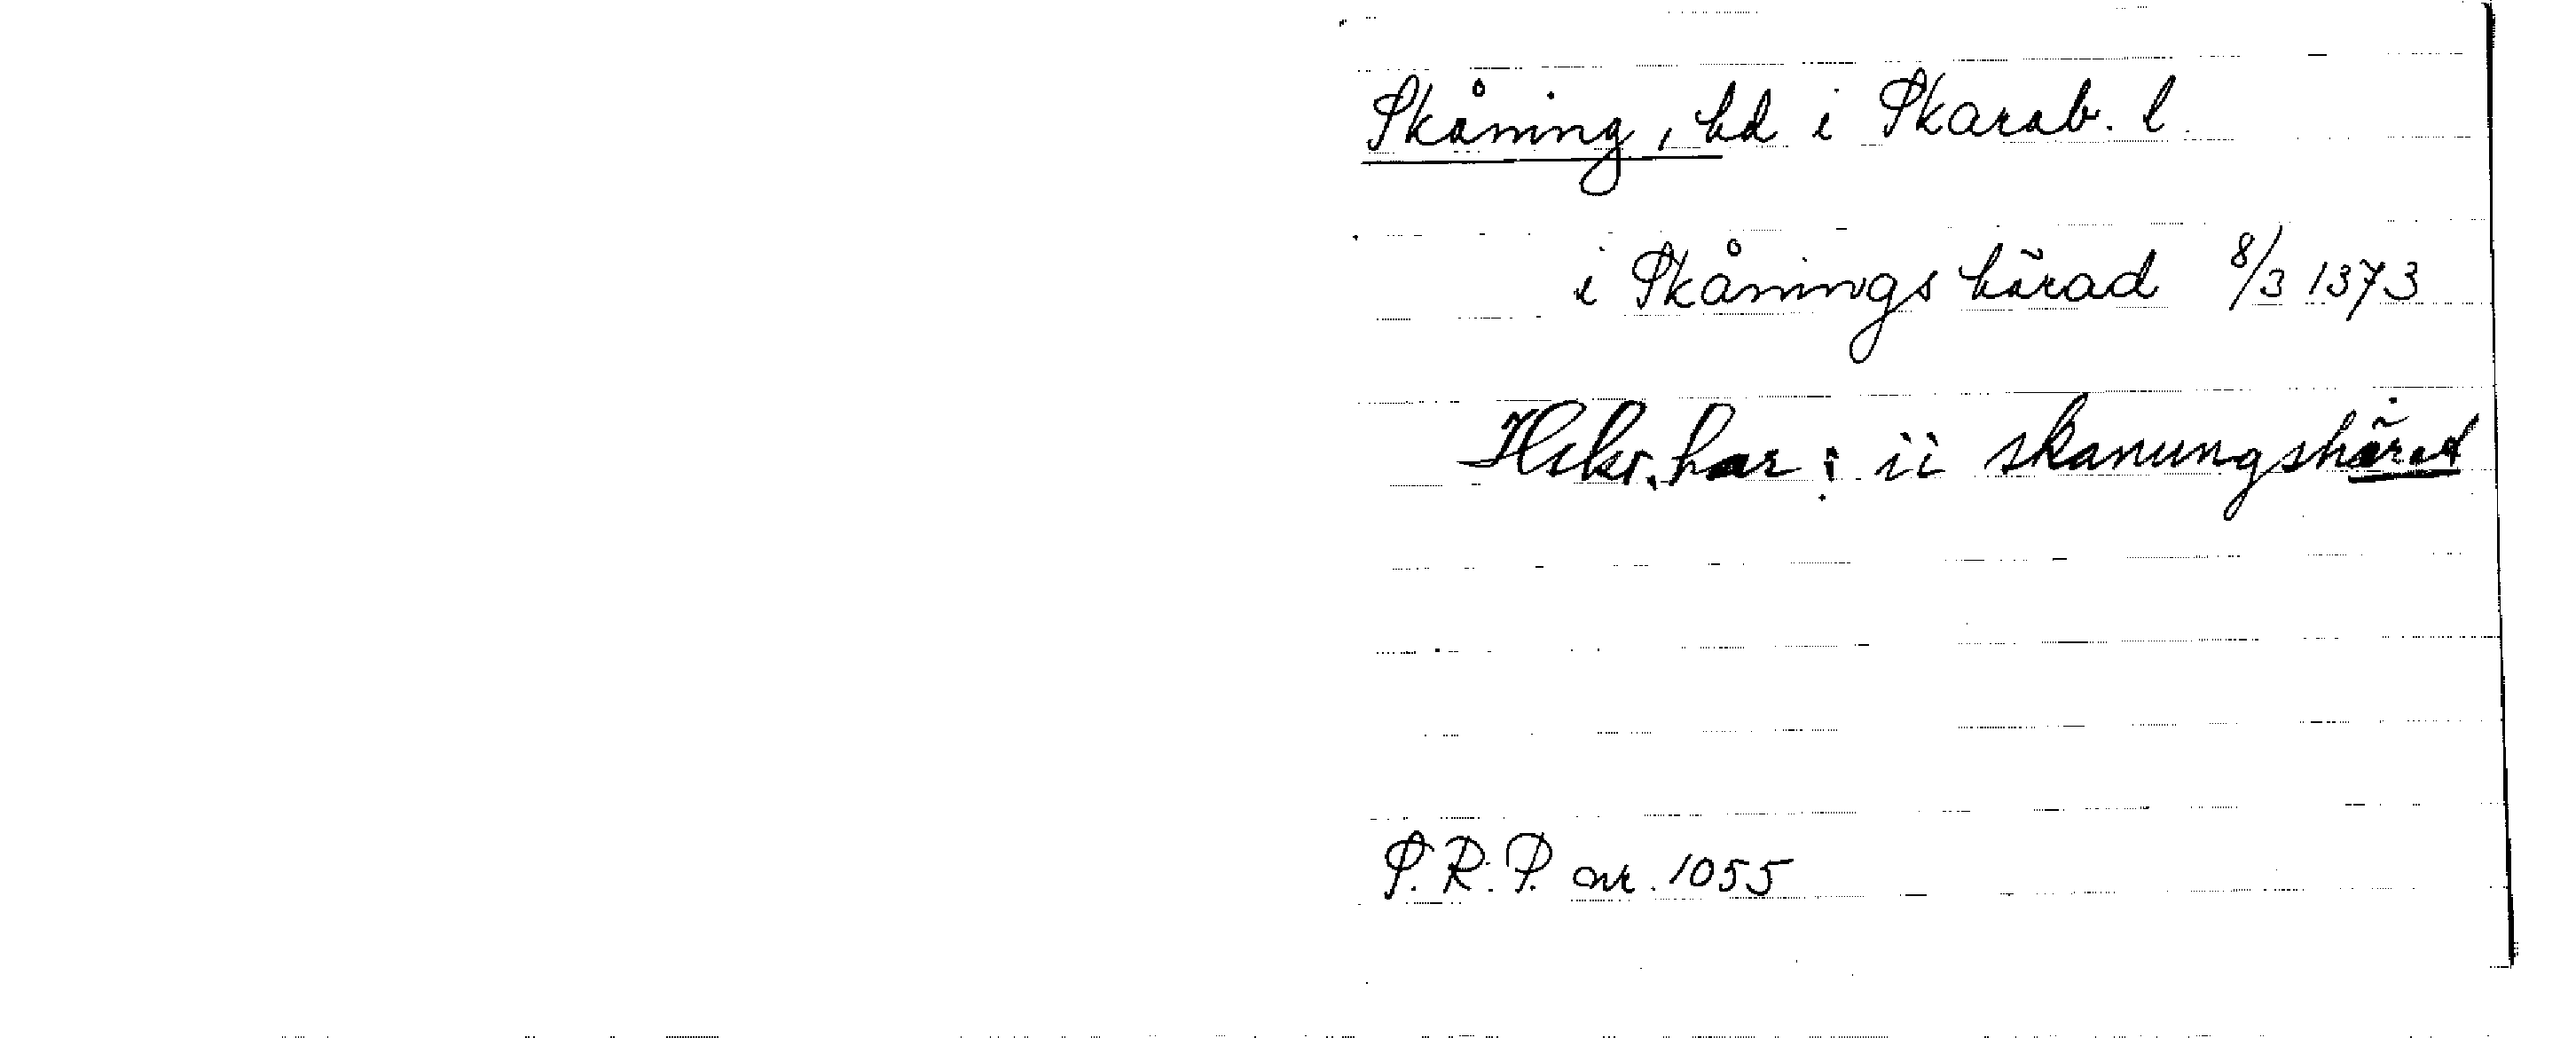 Skåning, hd i Skarab. l.
i Skånings härad 8/3 1373
Hskr. har: ii skanungshärad
S.R.P. nr. 1055